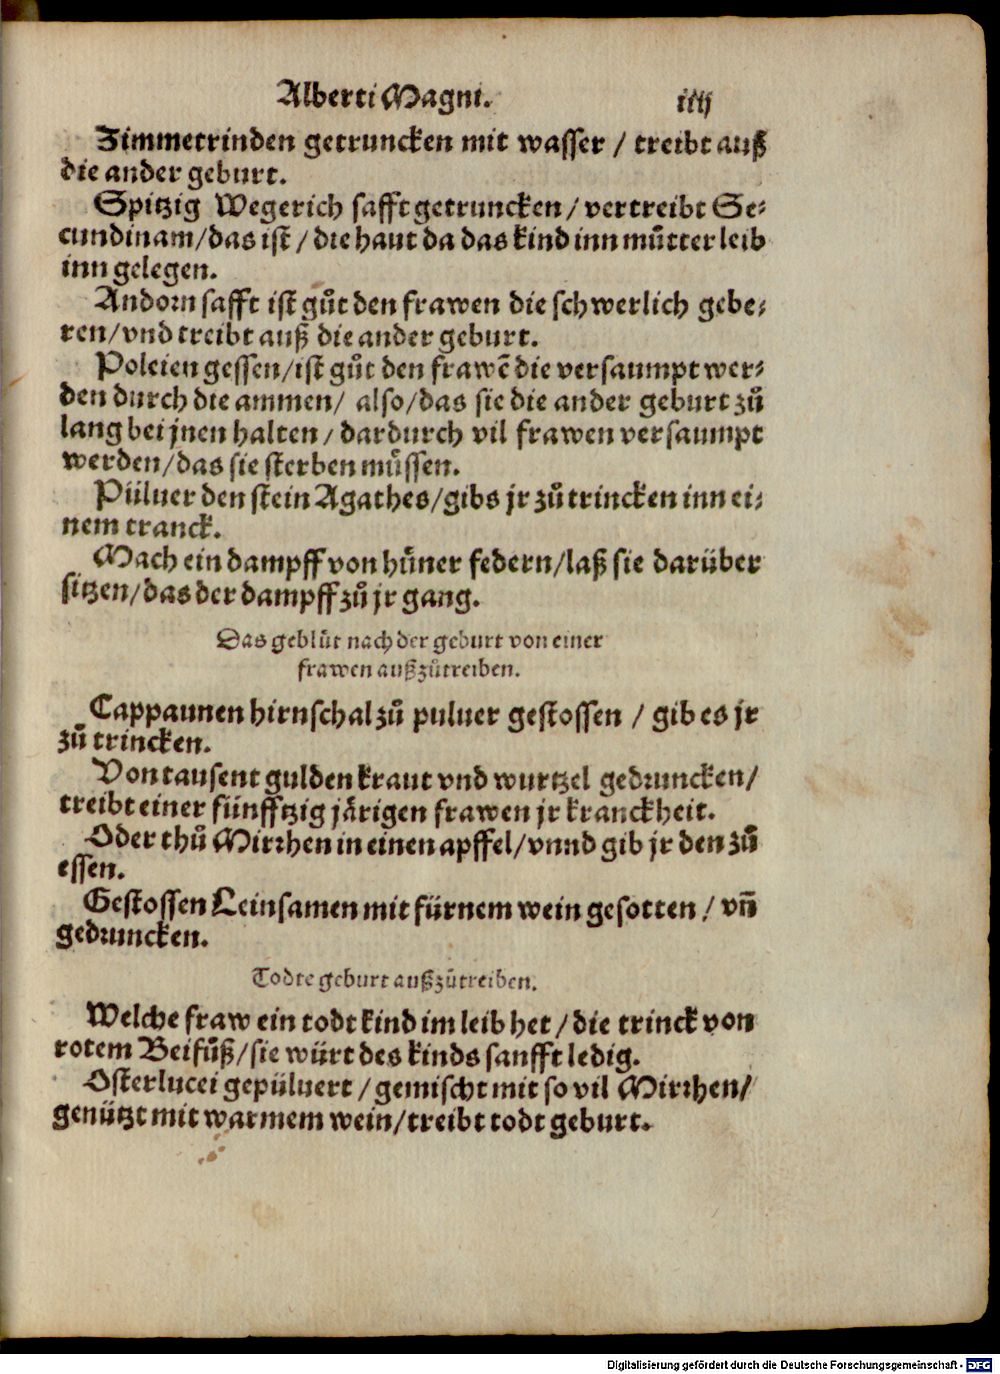 Alberti Magni. iiij
Zimmetrinden getruncken mit wasser / treibt auß
die ander geburt.
Spitzig Wegerich safft getruncken / vertreibt Se⸗
cundinam / das ist / die haut da das kind inn můtter leib
inn gelegen.
Andorn safft ist gůt den frawen die schwerlich gebe⸗
ren / vnd treibt auß die ander geburt.
Poleien gessen / ist gůt den frawẽ die versaumpt wer⸗
den durch die ammen / also / das sie die ander geburt zů
lang bei jnen halten / dardurch vil frawen versaumpt
werden / das sie sterben můssen.
Püluer den stein Agathes / gibs jr zů trincken inn ei⸗
nem tranck.
Mach ein dampff von hůner federn / laß sie darüber
sitzen / das der dampff zů jr gang.
Das geblůt nach der geburt von einer
frawen außzůtreiben.
Cappaunen hirnschal zů puluer gestossen / gib es jr
zů trincken.
Von tausent gulden kraut vnd wurtzel gedruncken /
treibt einer fünfftzig järigen frawen jr kranckheit.
Oder thů Mirrhen in einen apffel / vnnd gib jr den zů
essen.
Gestossen Leinsamen mit fürnem wein gesotten / vñ
gedruncken.
Todte geburt außzůtreiben.
Welche fraw ein todt kind im leib het / die trinck von
rotem Beifůß / sie würt des kinds sanfft ledig.
Osterlucei gepüluert / gemischt mit so vil Mirrhen /
genützt mit warmem wein / treibt todt geburt.
Digitalisierung gefördert durch die Deutsche Forschungsgemeinschaft - DFG